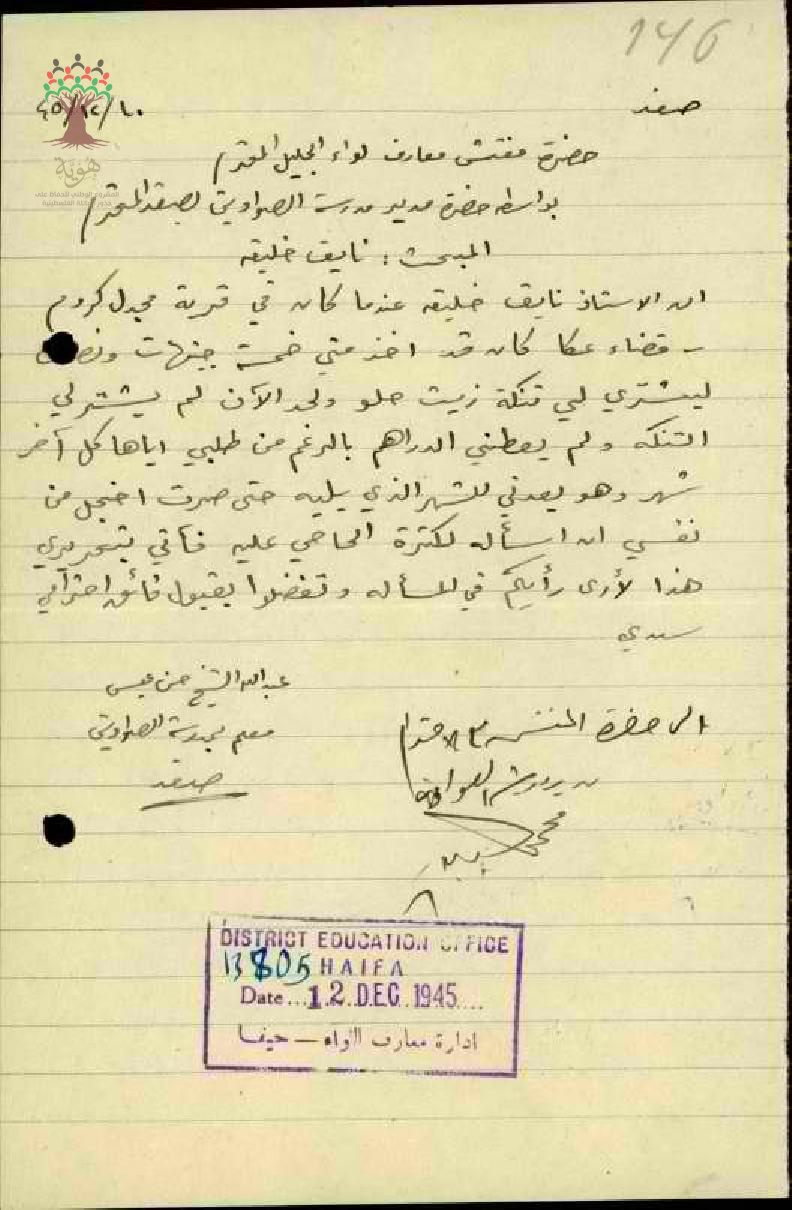 146
صفد ١٠/١٢/٤٥
هوية
المشروع الوطني للحفاظ على
جذور العائلة الفلسطينية
حضرة مفتش معارف لواء الجليل المحترم
بواسطة حضرة مدير مدرسة الصواوين بصفد المحترم
المبحث : نايف خليفه
ان الاستاذ نايف خليفه عندما كان في قرية مجدل كروم
قضاء عكا كان قد اخذ مني خمسة جنيهات ونصف
ليشتري لي تنكة زيت حلو ولحد الآن لم يشتر لي
التنكه ولم يعطني الدراهم بالرغم من طلبي اياها كل آخر
شهر وهو يعدني للشهر الذي يليه حتى صرت اخجل من
نفسي ان اسأله لكثرة الحاحي عليه فأتي بتحريري
هذا لأرى رأيكم في المسأله وتفضلوا بقبول فائق احترامي
سيدي
عبدالله الشيخ حسن عيسى
معلم بمدرسة الصواوين
صفد
الى حضرة المفتش مع الاحترام
مدير مدرسة الصواوين
محمود
DISTRICT EDUCATION OFFICE
13805 HAIFA
Date ... 12 DEC 1945 ....
ادارة معارف اللواء — حيفا